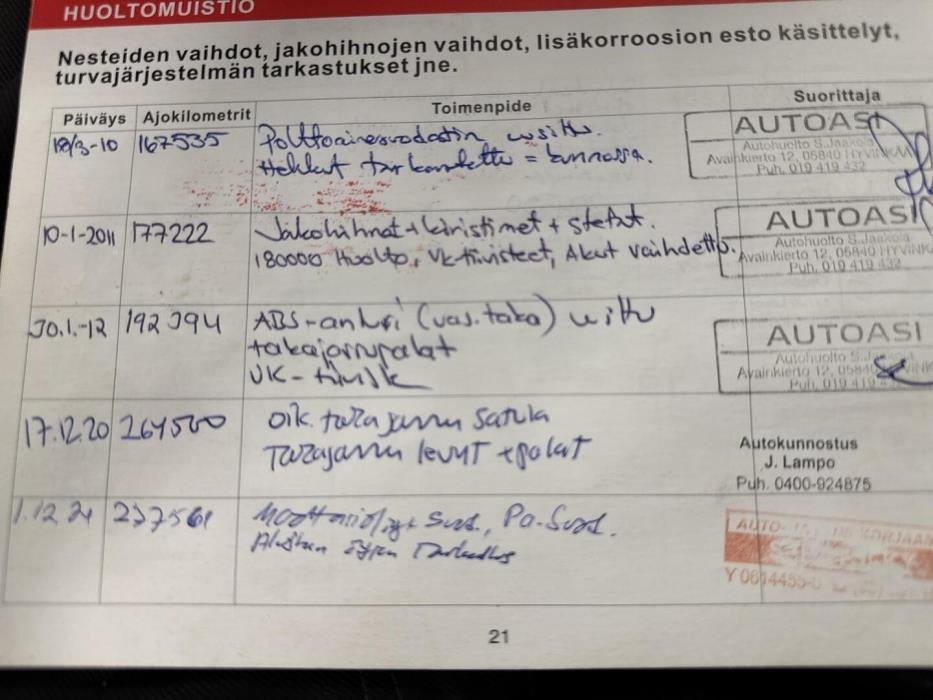 HUOLTOMUISTIO
Nesteiden vaihdot, jakohihnojen vaihdot, lisäkorroosion esto käsittelyt,
turvajärjestelmän tarkastukset jne.
Päiväys Ajokilometrit Toimenpide Suorittaja
18/3-10 167535 Polttoainesuodatin uusittu.
Hehkut tarkastettu = kunnossa.
AUTOASI
Autohuolto S.Jaakola
Avainkierto 12, 05840 HYVINKÄÄ
Puh. 019 419 432
10-1-2011 177222 Jakohihnat + kiristimet + Stefat.
180000 Huolto, vk-tiivisteet, Akut vaihdettu.
AUTOASI
Autohuolto S.Jaakola
Avainkierto 12, 05840 HYVINK
Puh. 019 419 432
30.1.-12 192394 ABS-anturi (vas.taka)
takajarrupalat
VK-tiivist
AUTOASI
Autohuolto S.Jaakola
Avainkierto 12, 05840 HYVINK
Puh. 019 419
17.12.20 264500 Oik. takajarru satula
Takajarru levyt + palat
Autokunnostus
J. Lampo
Puh. 0400-924875
1.12.21 Moottoriöljyt Suod., Pa-Suod.
Tarkastus
AUTO- KORJAAM
21